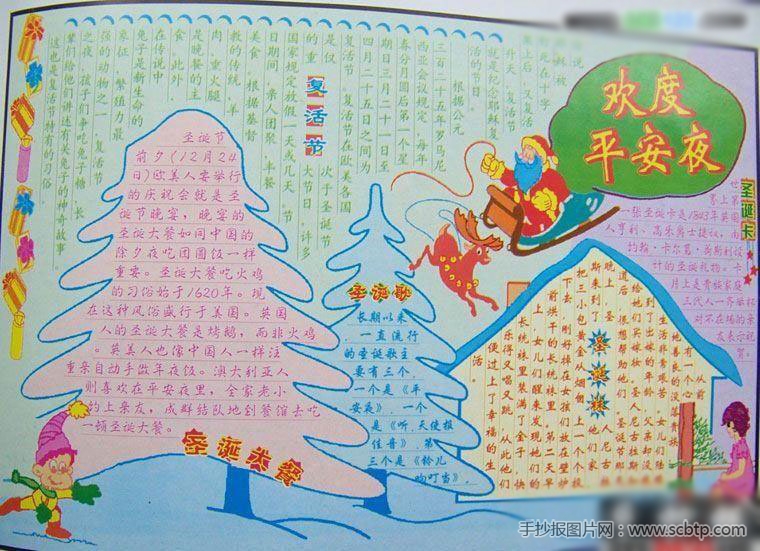 欢度
平安夜
复活节
说，
稣被
死在十字
上后，又复活
升天。复活节
就是纪念耶稣复
活的节日。
根据公元
三百二十五年罗马尼
西亚会议规定，每年
春分月圆后第一个星
期日三月二十一日至
四月二十五日之间为
复活节。复活节在欧美各国
是仅
次于圣诞节
的重
大节日。许多
国家规定放假一天或几天。节
日期间，亲人团聚，丰餐
美食。根据基督
教的传统，羊
肉、熏火腿
是晚餐的主
食。此外，
在传说中
兔子是新生命的
象征，繁殖力最
强的动物之一，复活节
之夜，孩子们争吃兔子糖，长
辈们给他们讲述有关兔子的神奇故事。
这也是复活节特有的习俗
圣诞节
前夕(12月24
日)欧美人要举行
的庆祝会就是圣
诞节晚宴，晚宴的
圣诞大餐如同中国的
除夕夜吃团圆饭一样
重要。圣诞大餐吃火鸡
的习俗始于1620年。现
在这种风俗盛行于美国。英国
人的圣诞大餐是烤鹅，而非火鸡
。英美人也像中国人一样注
重亲自动手做年夜饭。澳大利亚人
则喜欢在平安夜里，全家老小
约上亲友，成群结队地到餐馆去吃
一顿圣诞大餐。
圣诞大餐
圣诞歌
长期以来
，一直流行
的圣诞歌主
要有三个，
一个是《平
安夜》，一个
是《听，天使报
佳音》，第
三个是《铃儿
响叮当》。
圣诞卡
世
界上第
一张圣诞卡是1843年英国
人亨利·高乐爵士提议，由
约翰·卡尔葛·荷斯利设
计的圣诞礼物。卡
片上是贵族家庭
三代人一齐举杯
对不在场的亲
友表示祝
贺。
圣诞袜
从前
，有一个心
地善良的没落贵族
生活非常艰苦，
到了出嫁的年龄，父亲却没
给她们买嫁妆。圣人尼古拉斯
道后，很想帮助他们。圣诞节那
晚上，圣人尼古
斯来到了他们家，
把三小包黄金从烟囱上一个个投
下去，刚好掉在女孩们放在壁炉
前烘干的长统袜里。第二天早
上，女儿们醒来发现她们的
长统袜里装满了金子，快
乐得又唱又跳，从此他们
过上了幸福的生
活。
手抄报图片网:www.scbtp.com